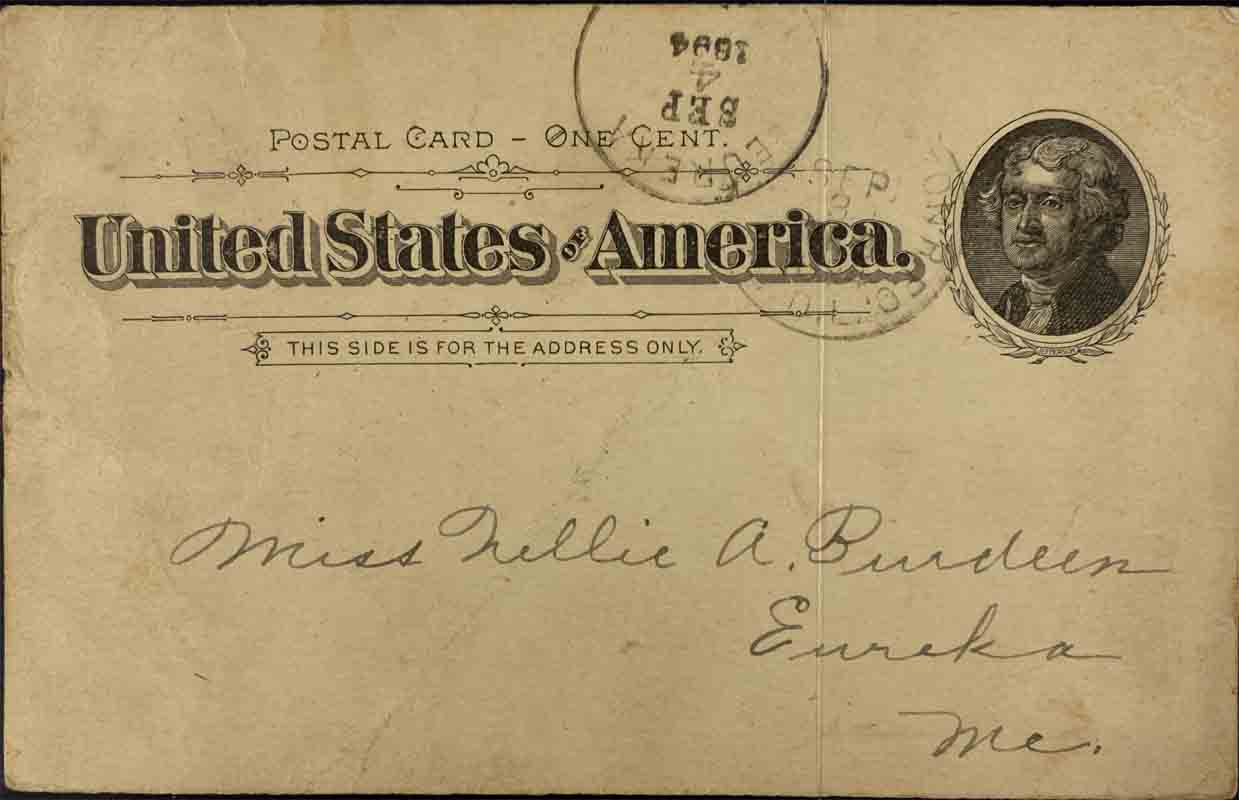 1894
4
SEP
POSTAL CARD – ONE CENT.
SEP
United States OF America.
THIS SIDE IS FOR THE ADDRESS ONLY.
JEFFERSON
Miss Nellie A. Burdeen
Eureka
Me.